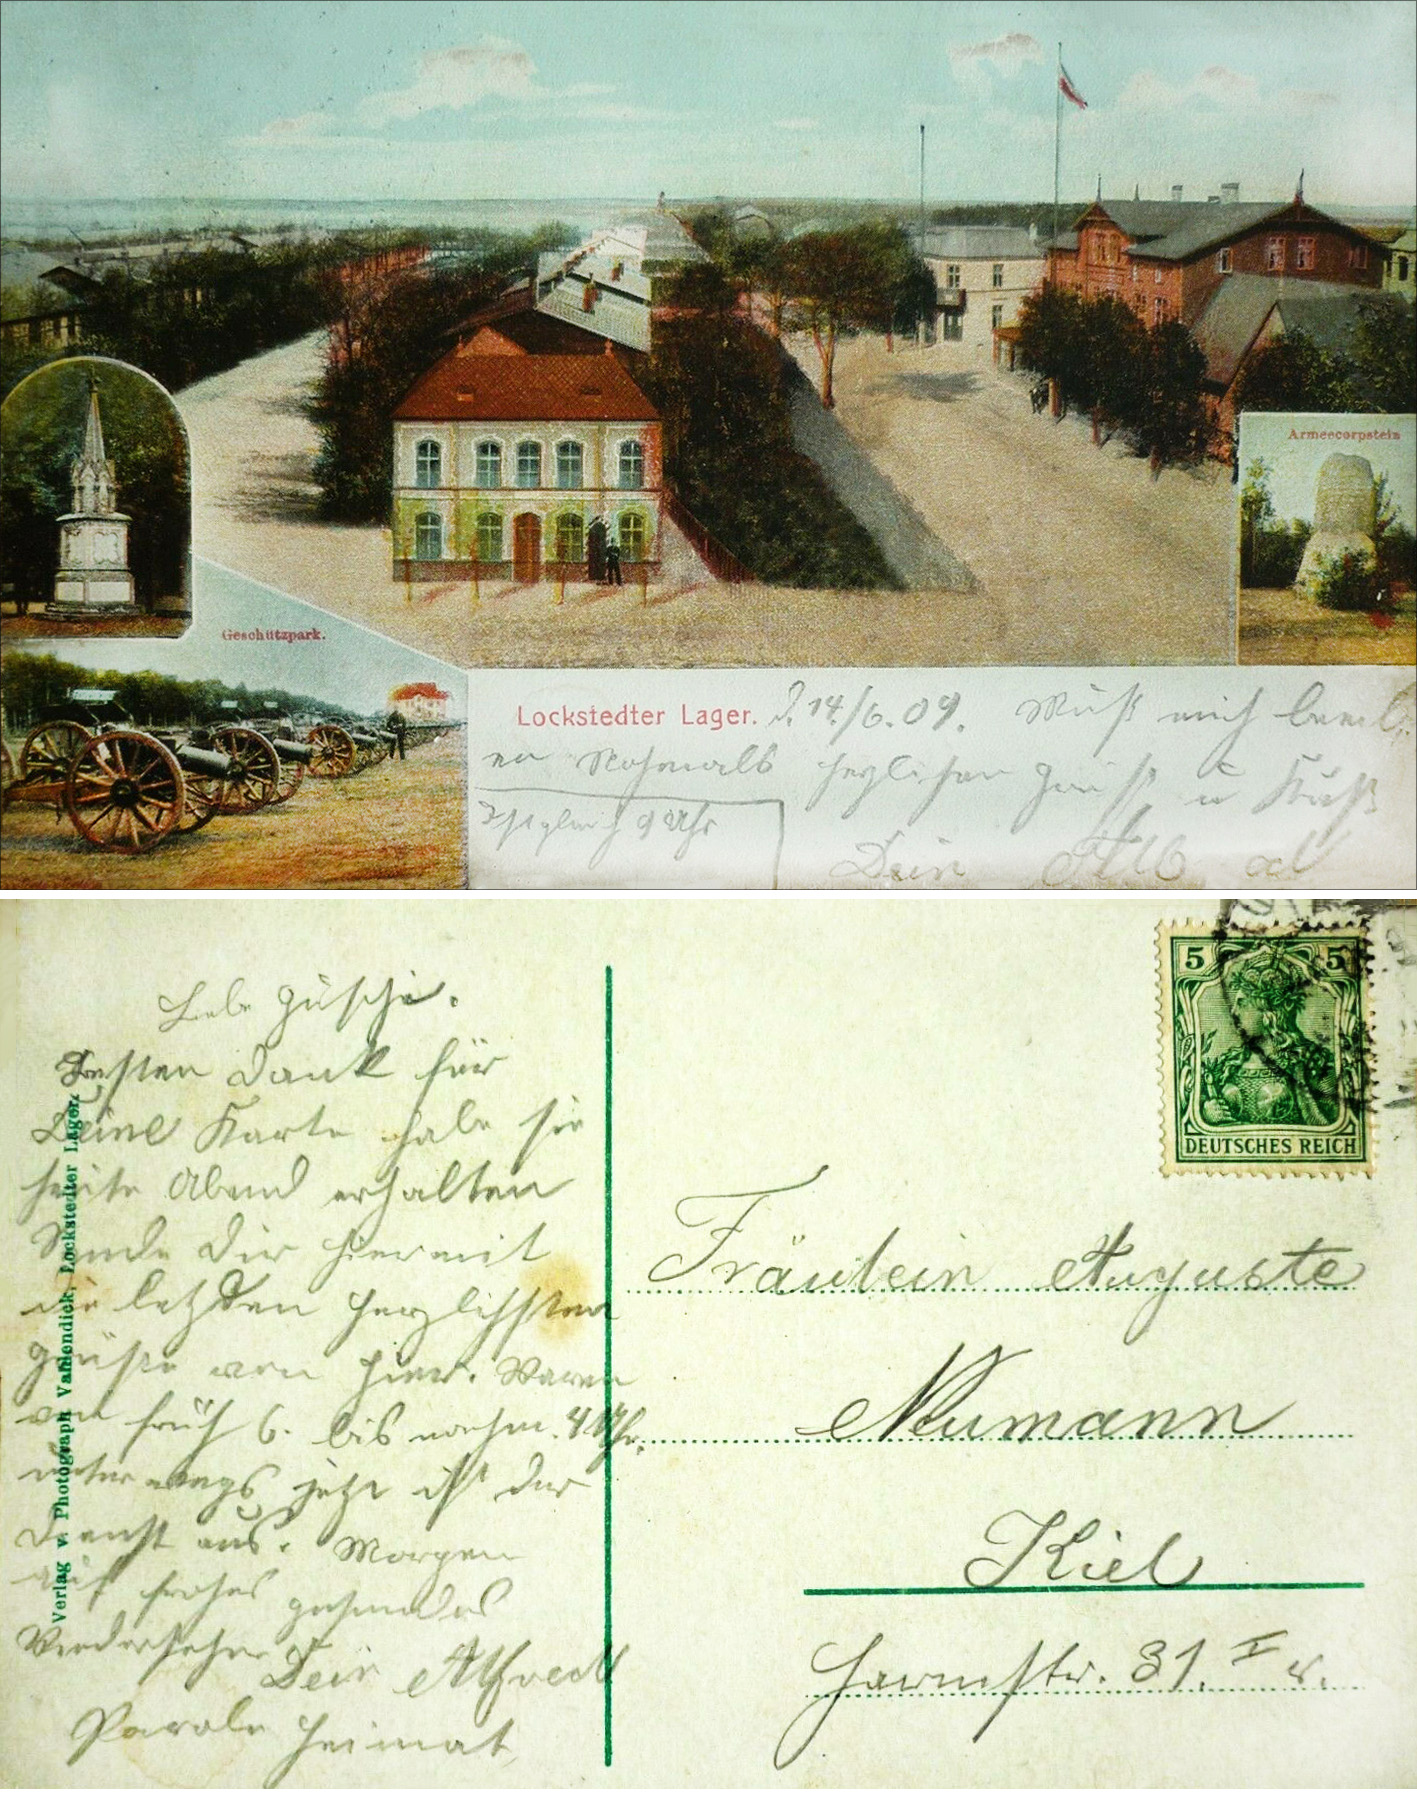 Armeecorpstein
Geschützpark.
Lockstedter Lager. d. 14/6.09. Muß mich beeil
en Nochmals herzlichen Gruß u Kuß
9 Uhr
Dein
Liebe Guschi.
Besten Dank für
Deine Karte habe sie
heute Abend erhalten
Sende Dir hiermit
die letzten herzlichsten
Grüße von hier. Waren
von früh 6. bis nachm. 4 Uhr.
unterwegs jetzt ist der
Dienst aus. Morgen
auf frohes gesundes
Wiedersehen
Dein Alfred
Parole Heimat
Verlag v. Photograph Vahlendick, Lockstedter Lager.
5 5
DEUTSCHES REICH
Fräulein Auguste
Neumann
Kiel
Harmstr. 31. I r.